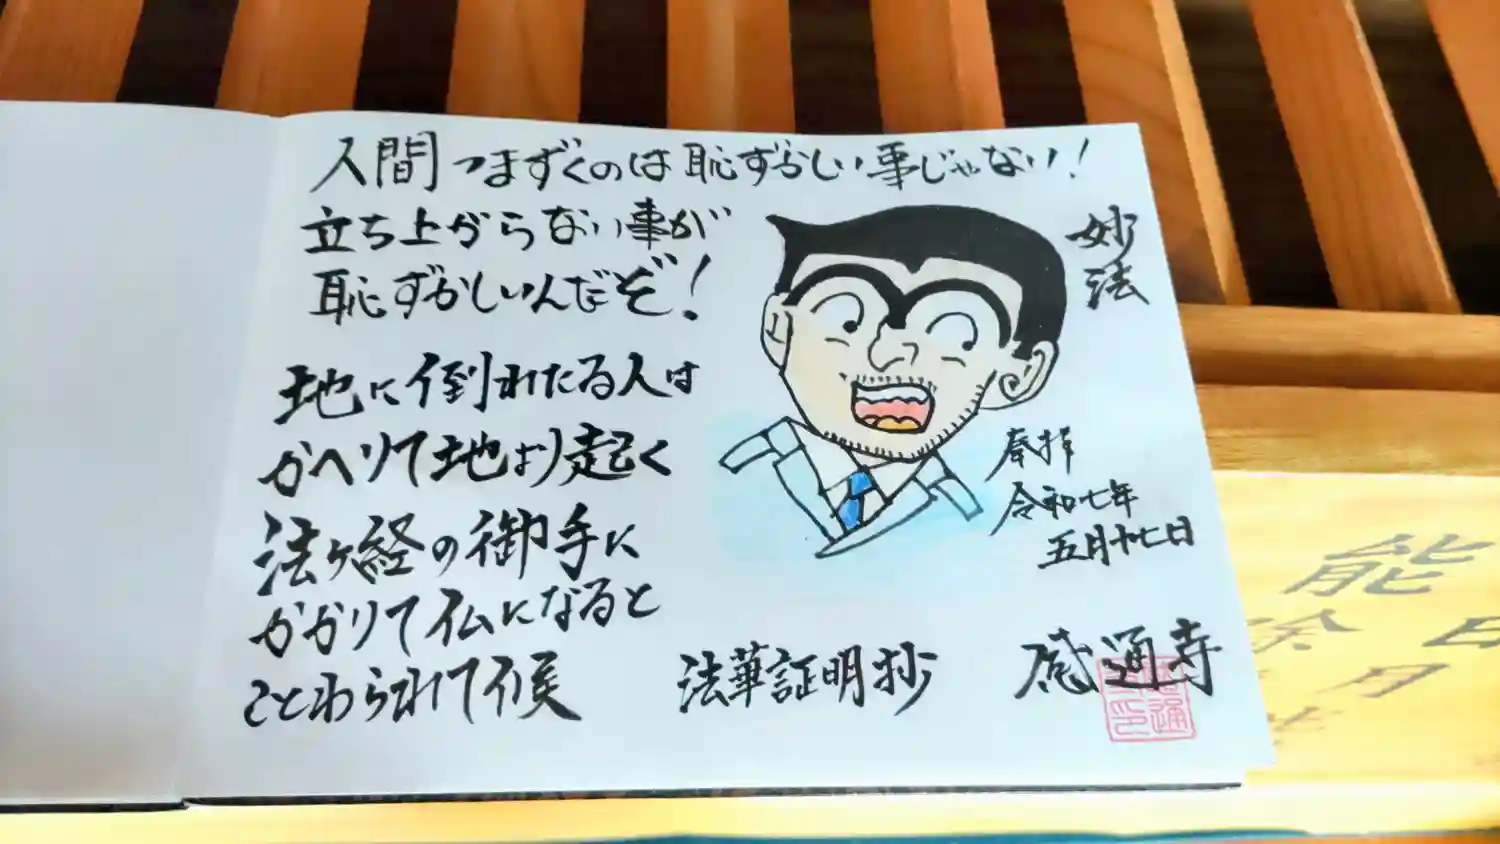 人間つまずくのは恥ずかしい事じゃない！
立ち上がらない事が
恥ずかしいんだぞ！
地に倒れたる人は
かへりて地より起く
法ヶ経の御手に
かかりて仏になると
ことわられて候
法華証明抄
妙法
奉拝
令和七年
五月十七日
感通寺
能